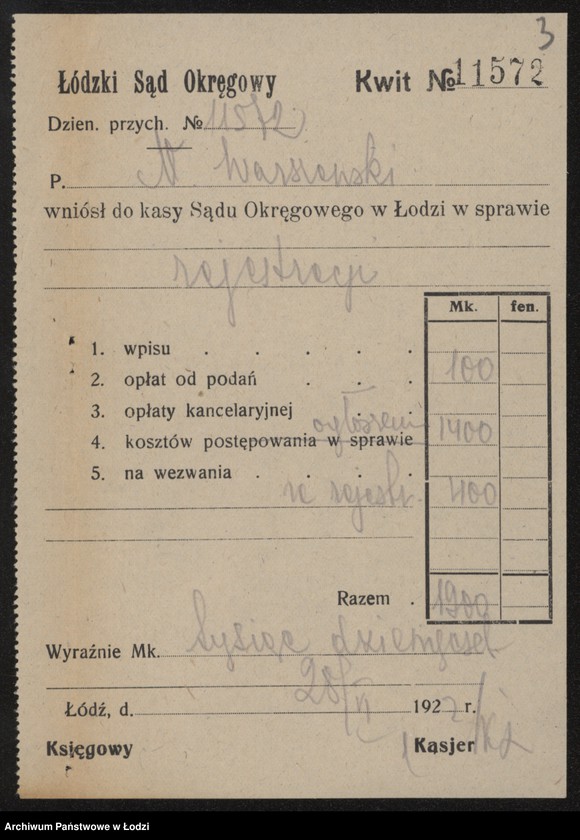 3
Łódzki Sąd Okręgowy Kwit № 11572
Dzien. przych. № 11572
P. N. Warszawski
wniósł do kasy Sądu Okręgowego w Łodzi w sprawie
rejestracji
Mk. fen.
1. wpisu . . . . .
2. opłat od podań . . . 100
3. opłaty kancelaryjnej . .
ogłoszeń
4. kosztów postępowania w sprawie 1400
5. na wezwania . . . .
za rejestr. 400
Razem . 1900
Wyraźnie Mk. tysiąc dziewięćset
Łódź, d. 28/VI 1922 r.
Księgowy Kasjer
Archiwum Państwowe w Łodzi